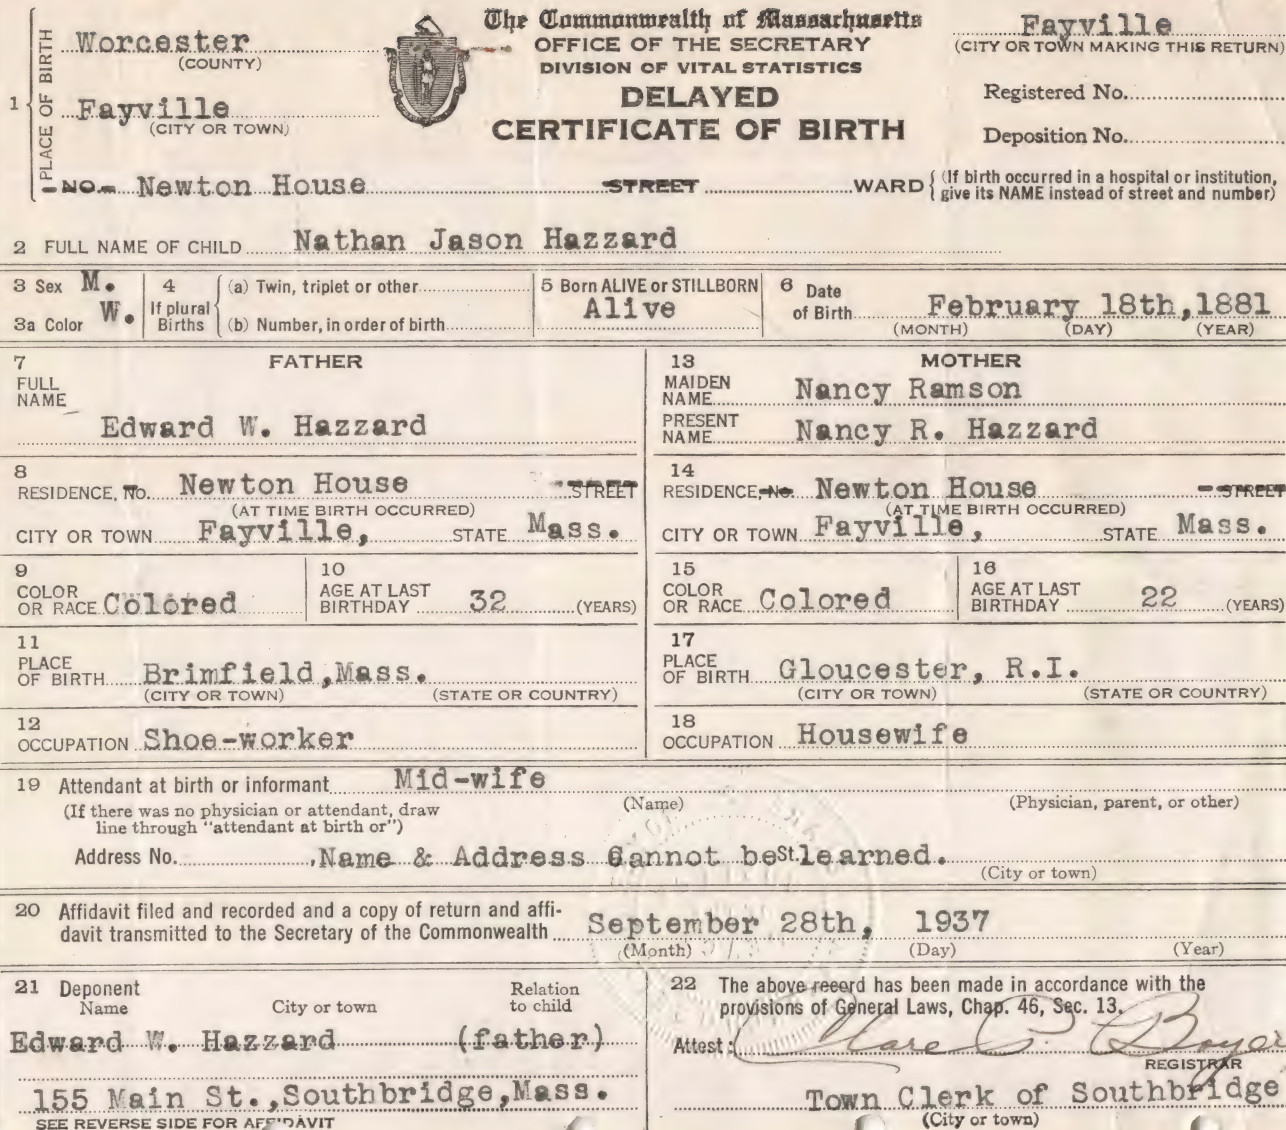 The Commonwealth of Massachusetts
OFFICE OF THE SECRETARY
DIVISION OF VITAL STATISTICS
DELAYED
CERTIFICATE OF BIRTH
Fayville
(CITY OR TOWN MAKING THIS RETURN)
Registered No.
Deposition No.
1 PLACE OF BIRTH
Worcester
(COUNTY)
Fayville
(CITY OR TOWN)
NO. Newton House STREET WARD (If birth occurred in a hospital or institution,
give its NAME instead of street and number)
2 FULL NAME OF CHILD Nathan Jason Hazzard
3 Sex M.
3a Color W.
4 If plural Births
(a) Twin, triplet or other
(b) Number, in order of birth
5 Born ALIVE or STILLBORN
Alive
6 Date of Birth February 18th, 1881
(MONTH) (DAY) (YEAR)
7 FATHER
FULL NAME
Edward W. Hazzard
8
RESIDENCE, No. Newton House STREET
(AT TIME BIRTH OCCURRED)
CITY OR TOWN Fayville, STATE Mass.
9
COLOR OR RACE Colored
10
AGE AT LAST BIRTHDAY 32 (YEARS)
11
PLACE OF BIRTH Brimfield, Mass.
(CITY OR TOWN) (STATE OR COUNTRY)
12
OCCUPATION Shoe-worker
13 MOTHER
MAIDEN NAME Nancy Ramson
PRESENT NAME Nancy R. Hazzard
14
RESIDENCE, No. Newton House STREET
(AT TIME BIRTH OCCURRED)
CITY OR TOWN Fayville, STATE Mass.
15
COLOR OR RACE Colored
16
AGE AT LAST BIRTHDAY 22 (YEARS)
17
PLACE OF BIRTH Gloucester, R.I.
(CITY OR TOWN) (STATE OR COUNTRY)
18
OCCUPATION Housewife
19 Attendant at birth or informant Mid-wife
(If there was no physician or attendant, draw (Name) (Physician, parent, or other)
line through "attendant at birth or")
Address No. , Name & Address Cannot be St. learned.
(City or town)
20 Affidavit filed and recorded and a copy of return and affi-
davit transmitted to the Secretary of the Commonwealth September 28th, 1937
(Month) (Day) (Year)
21 Deponent
Name City or town Relation to child
Edward W. Hazzard (father)
155 Main St., Southbridge, Mass.
SEE REVERSE SIDE FOR AFFIDAVIT
22 The above record has been made in accordance with the
provisions of General Laws, Chap. 46, Sec. 13.
Attest: Clare P. Boyer
REGISTRAR
Town Clerk of Southbridge
(City or town)